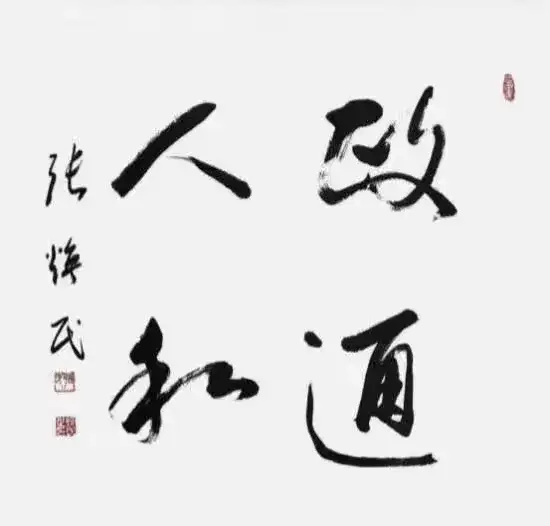 政通
人和
张焕民